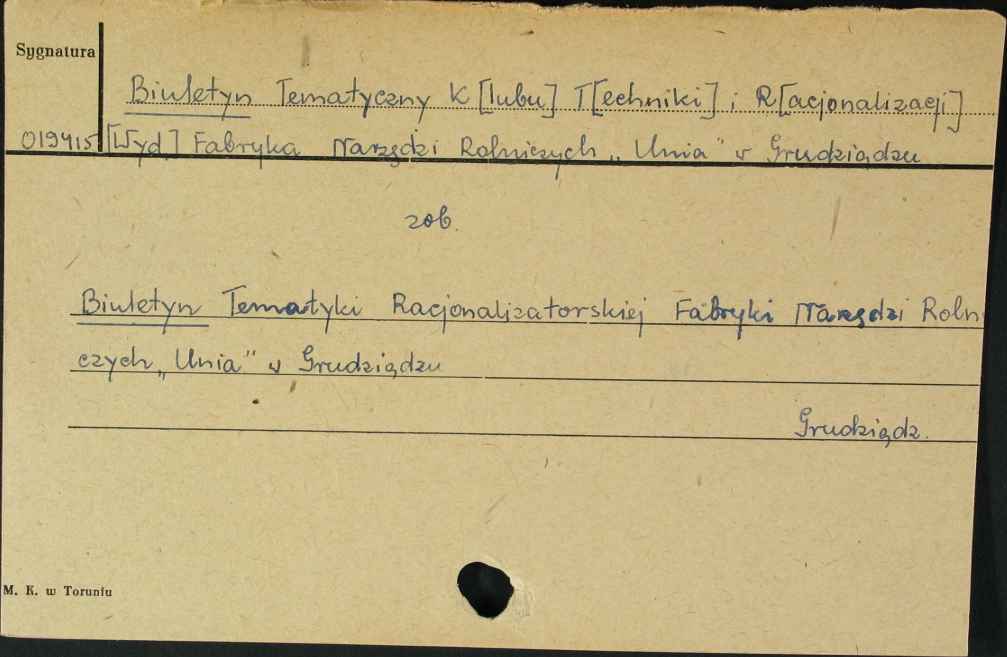 Sygnatura
Biuletyn Tematyczny K[lubu] T[echniki] i R[acjonalizacji]
019415 [Wyd] Fabryka Narzędzi Rolniczych „Unia" w Grudziądzu
zob.
Biuletyn Tematyki Racjonalizatorskiej Fabryki Narzędzi Rolni
czych „Unia" w Grudziądzu
Grudziądz.
M. K. w Toruniu